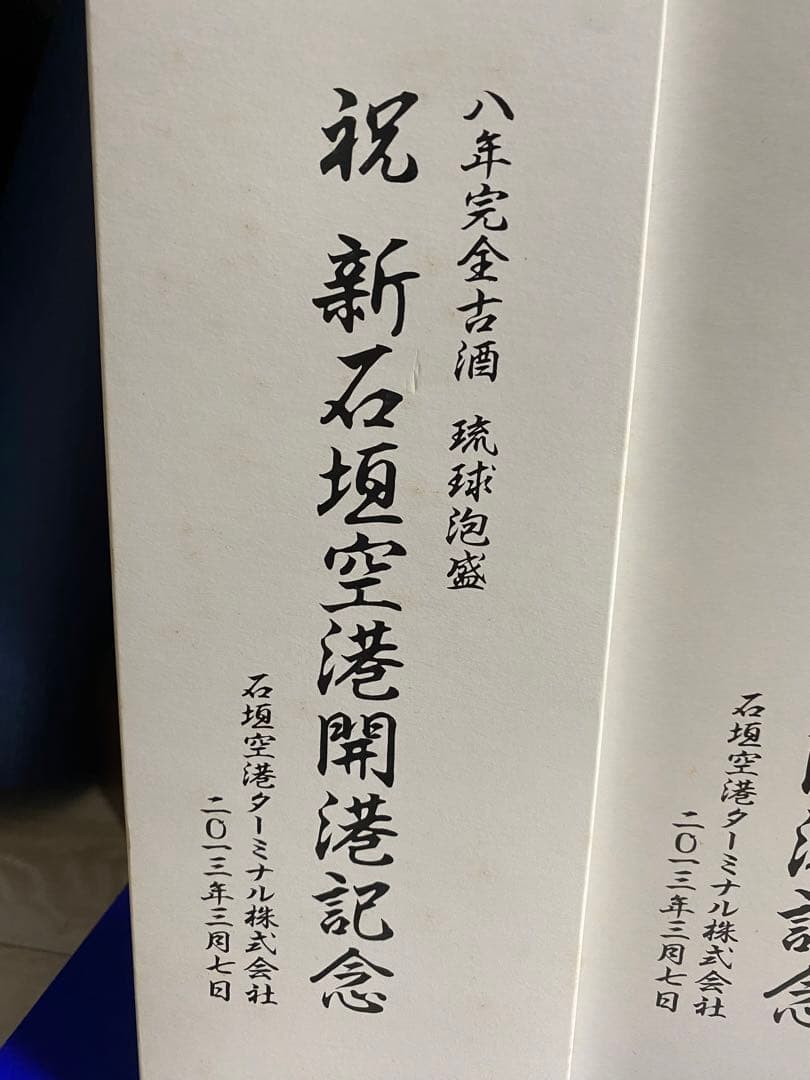 八年完全古酒 琉球泡盛
祝 新石垣空港開港記念
石垣空港ターミナル株式会社
二〇一三年三月七日
港記念
石垣空港ターミナル株式会社
二〇一三年三月七日